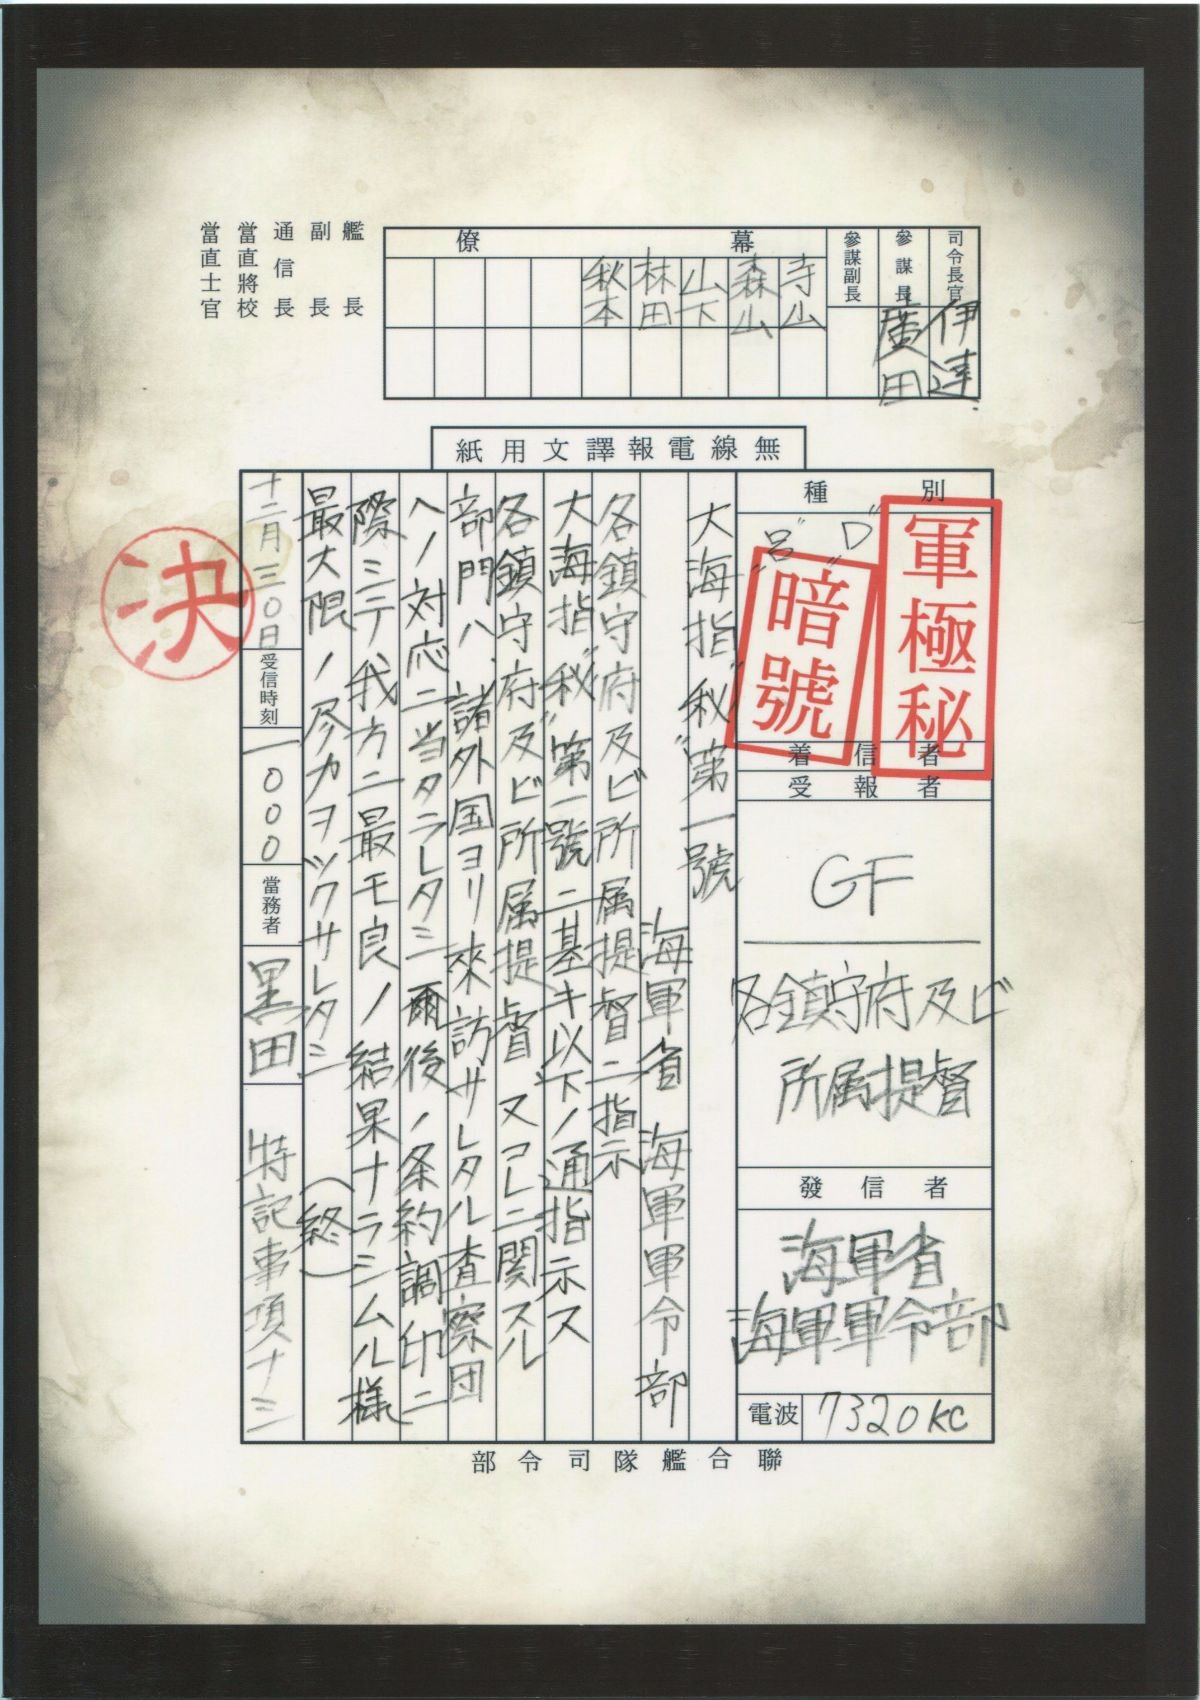 司令長官
伊達
參謀長
廣田
參謀副長
幕僚
寺山
森山
山下
林田
秋本
艦長
副長
通信長
當直將校
當直士官
無線電報譯文用紙
種別
軍極秘
"D"
"呂"
暗號
着信者
受報者
GF
各鎮守府及ビ
所属提督
發信者
海軍省
海軍軍令部
電波
7320KC
大海指"秘"第一號
海軍省 海軍軍令部
各鎮守府及ビ所属提督ニ指示
大海指"秘"第一號ニ基キ以下ノ通指示ス
各鎮守府及ビ所属提督 又コレニ関スル
部門ハ、諸外国ヨリ来訪サレタル査察団
ヘノ対応ニ当タラレタシ 爾後ノ条約調印ニ
際シテ我方ニ最モ良ノ結果ナラシムル様
最大限ノ尽力ヲツクサレタシ
(終)
十二月三〇日
受信時刻
一〇〇〇
當務者
黒田
特記事項ナシ
聯合艦隊司令部
決